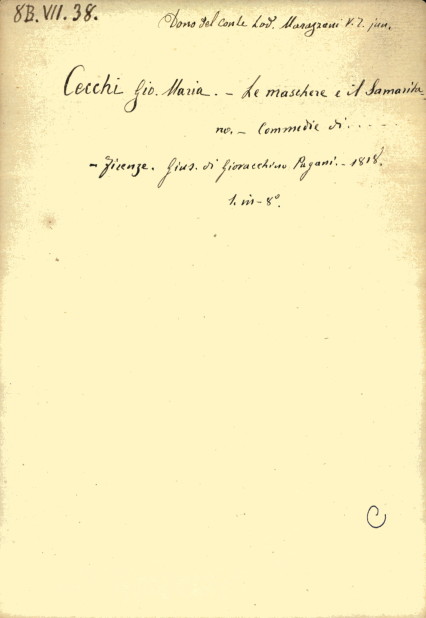 8B. VII. 38.
Dono del conte Lod. Marazzani V. Z. jun.
Cecchi Gio. Maria. - Le maschere e il Samarita
no. - Commedie di . . . .
- Firenze. Gius. di Giovacchino Pagani. - 1818.
1. in-8º.
C